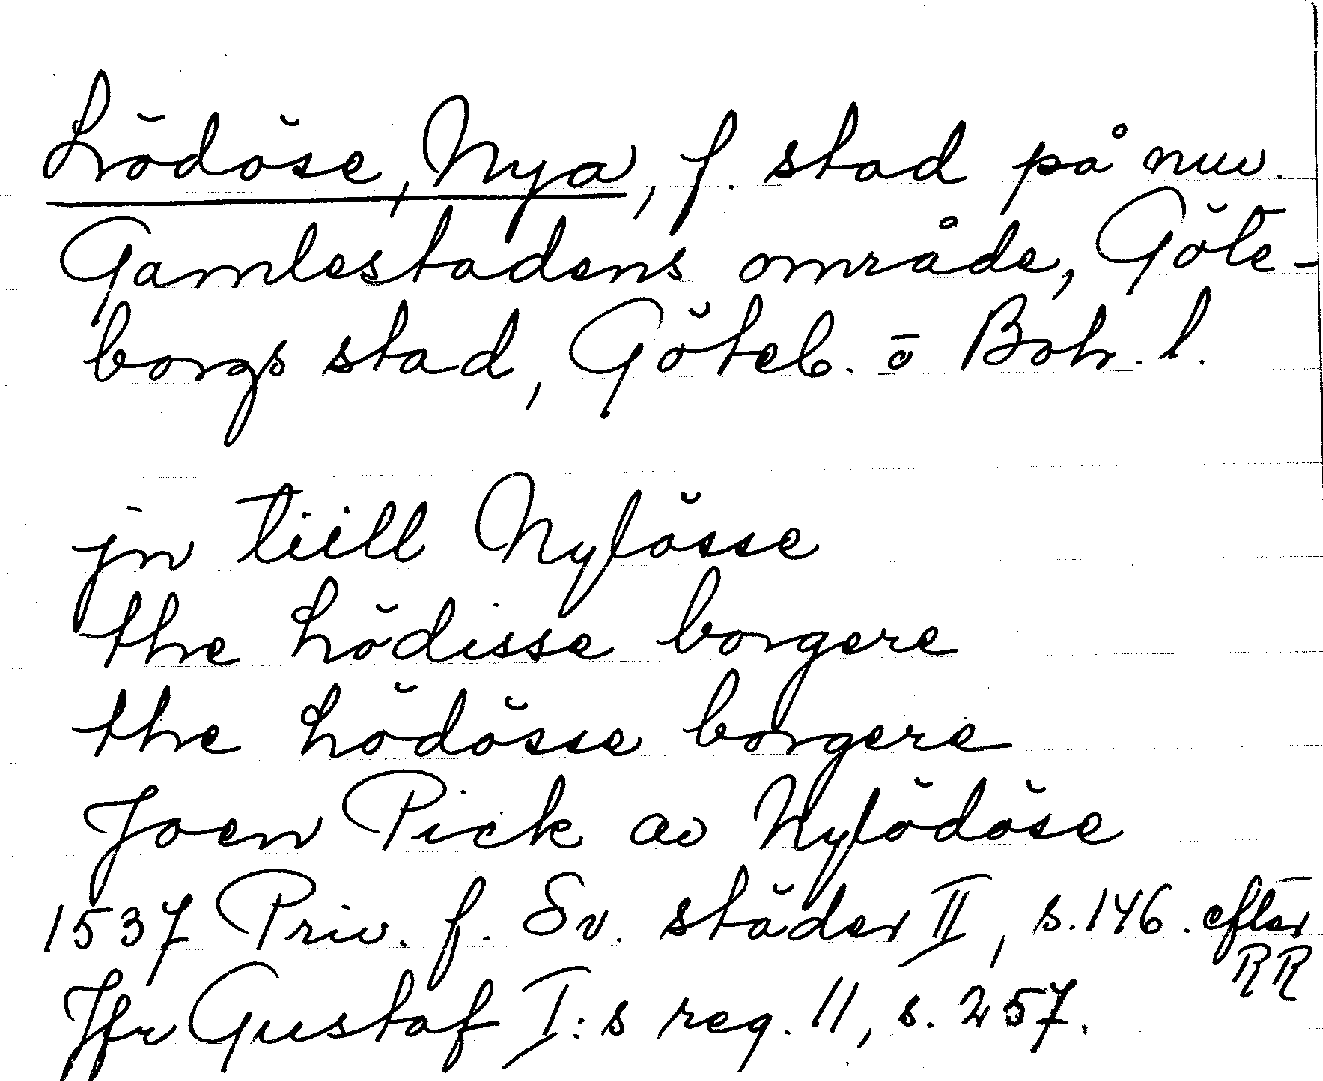 Lödöse, Nya, f. stad på nuv.
Gamlestadens område, Göte-
borgs stad, Göteb. o Boh. l.
jn tiill Nylösse
the Lödisse borgere
the Lödösse borgere
Joen Pick av Nylödöse
1537 Priv. f. Sv. städer II, s. 146. efter
RR
Jfr Gustaf I:s reg. 11, s. 257.